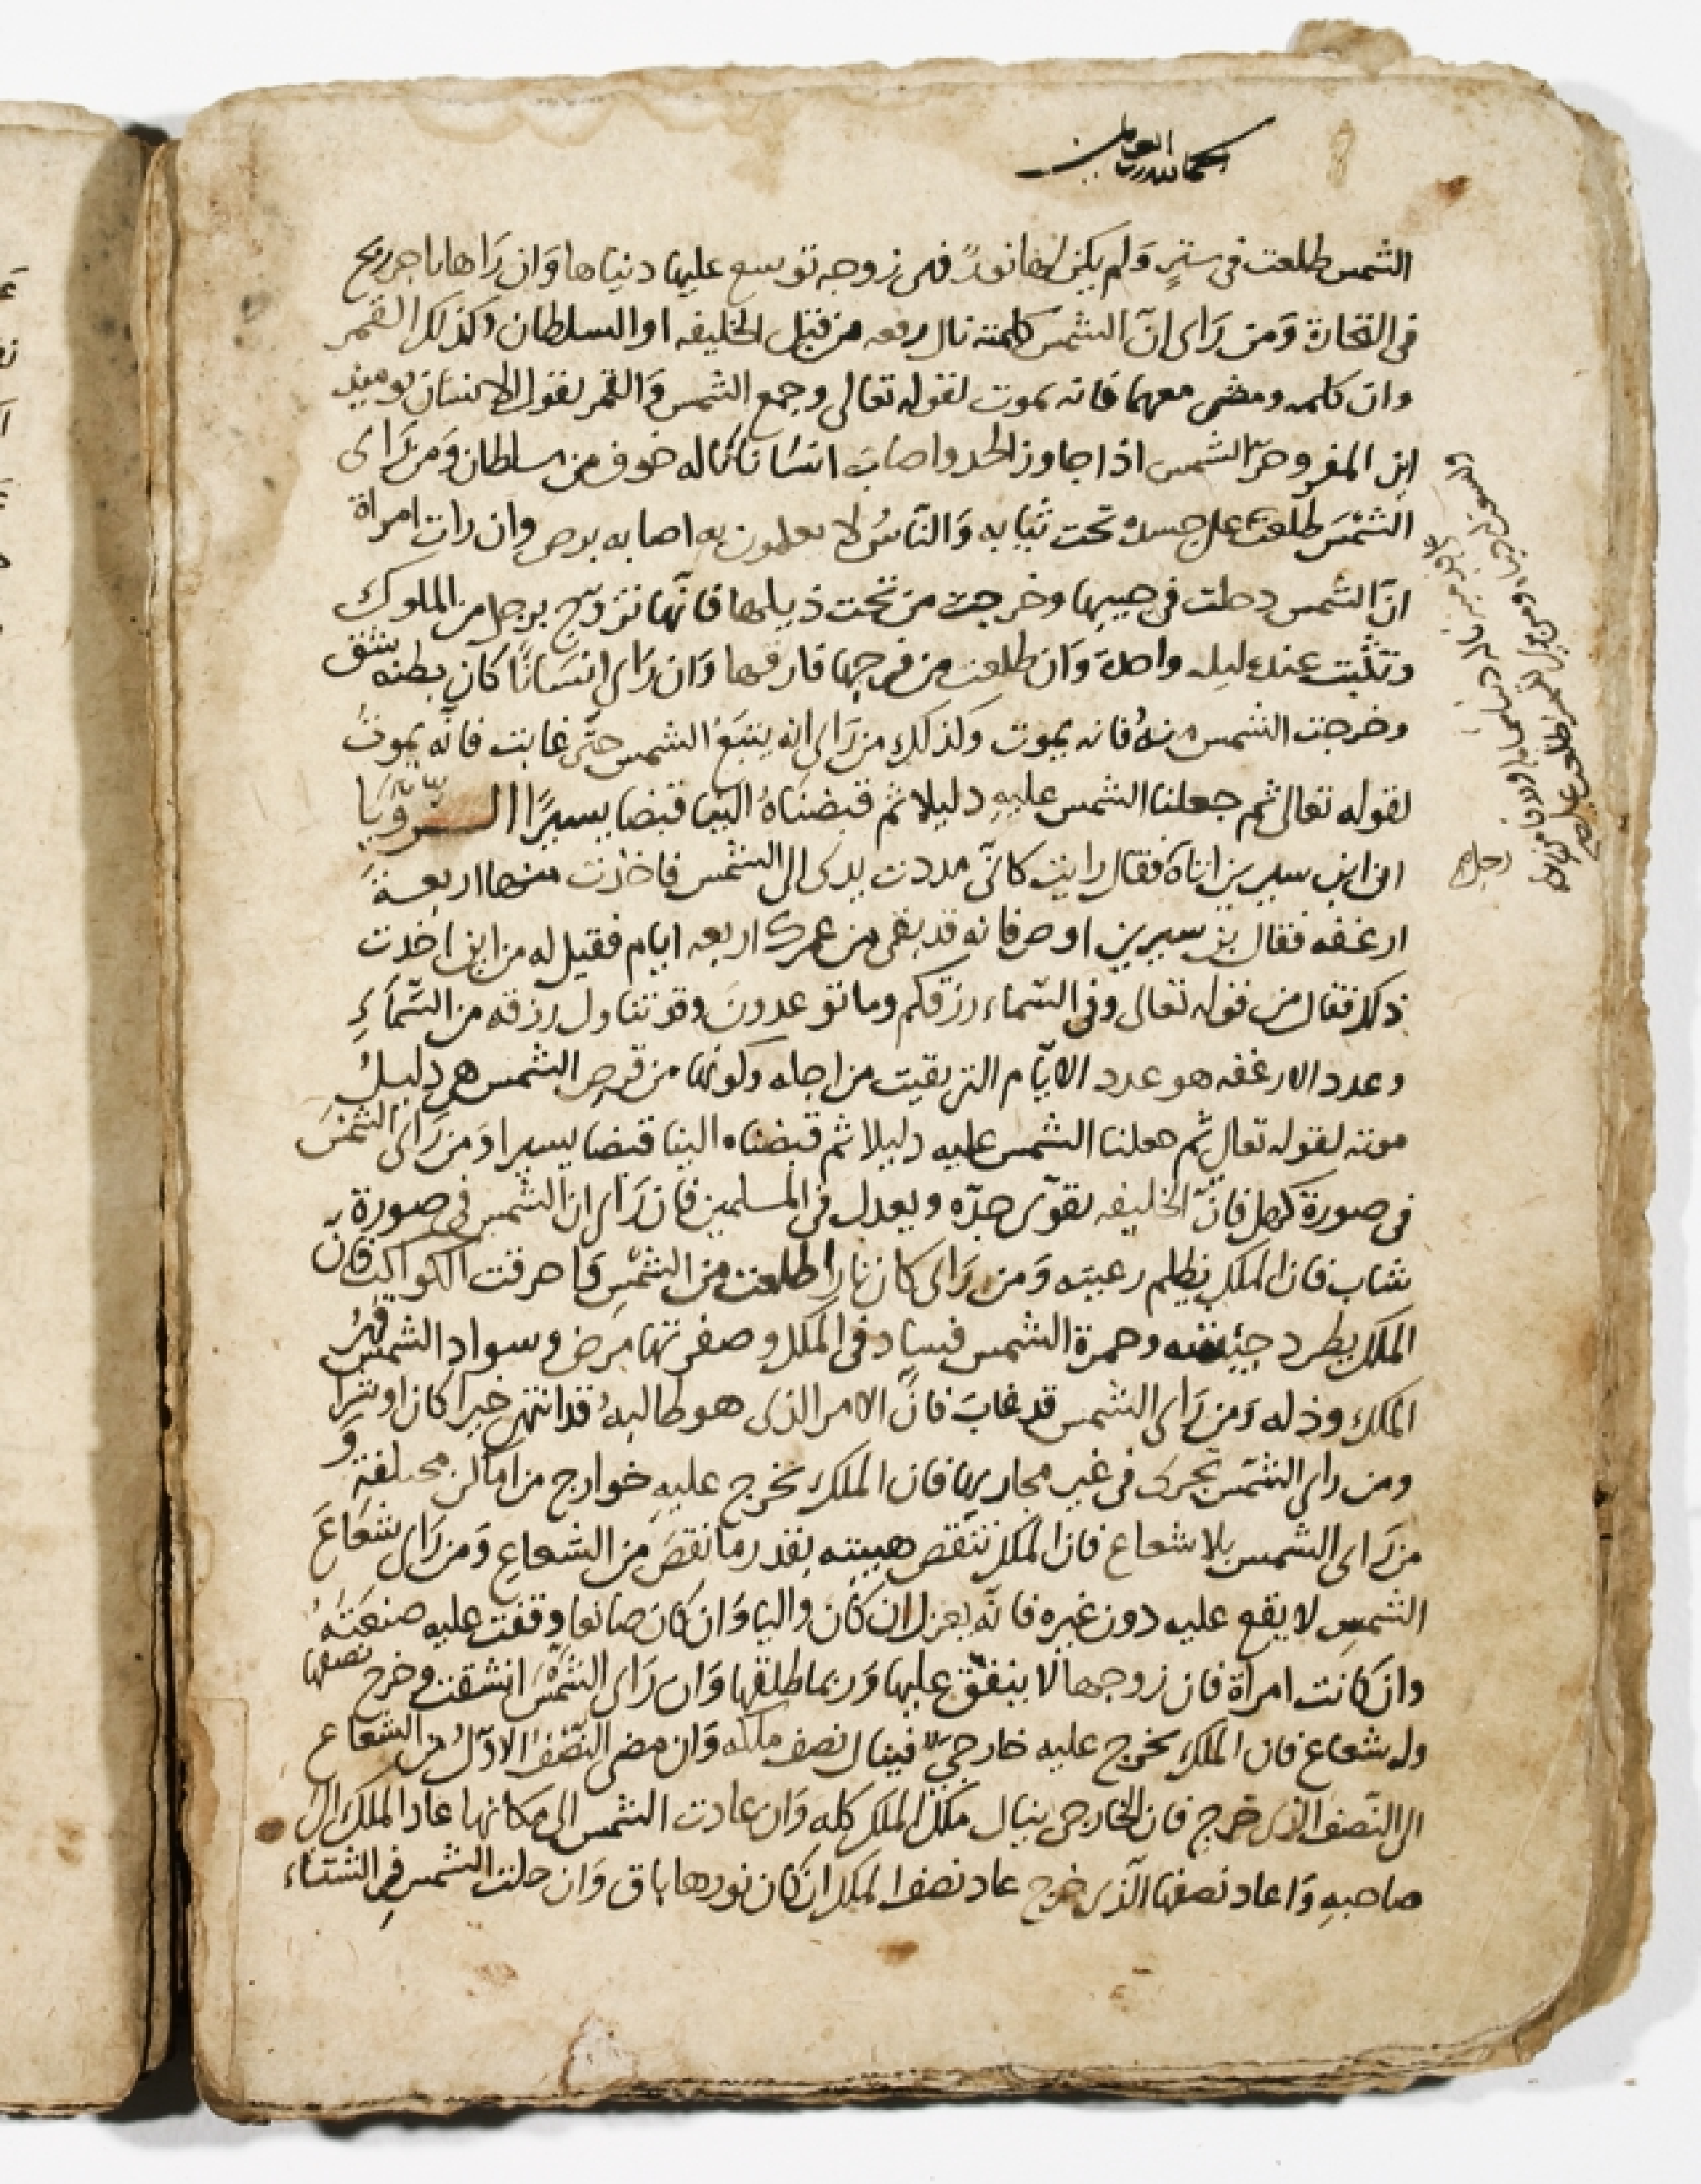 الحمد لله رب العالمين
الشمس طلعت في ستر ولم يكن لها نور فهي زوجه توسع عليها دنياها وان راها تاجر ربح
في التجارة ومن راى ان الشمس كلمته نال رفعه من قبل الخليفه او السلطان وكذلك القمر
وان كلمه ومضى معهما فانه يموت لقوله تعالى وجمع الشمس والقمر يقول الانسان يوميذ
اين المفر وحر الشمس اذا جاوز الحد واصاب انسانا ناله خوف من سلطان ومن راى
الشمس طلعت على جسده تحت ثيابه والناس لا يعلمون به اصابه برص وان رات امراة
ان الشمس دخلت في جيبها وخرجت من تحت ذيلها فانها تتزوج برجل من الملوك
وتثبت عنده ليله واحدة وان طلعت من فرجها فارقها وان راى انسانا كان بطنه شق
وخرجت الشمس منه فانه يموت وكذلك من راى انه يتبع الشمس حتى غابت فانه يموت
لقوله تعالى ثم جعلنا الشمس عليه دليلا ثم قبضناه الينا قبضا يسيرا الرويا
ان ابن سيرين اتاه فقال رايت كانى مددت يدى الى الشمس فاخذت منها اربعة
ارغفه فقال بن سيرين اوص فانه قد بقى من عمرك اربعه ايام فقيل له من اين اخذت
ذكك فقال من قوله تعالى وفي السماء رزقكم وما توعدون وقد تناول رزقه من السماء
وعدد الارغفه هو عدد الايام التى بقيت من اجله وكونها من قرص الشمس هى دليل
موته لقوله تعالى ثم جعلنا الشمس عليه دليلا ثم قبضناه الينا قبضا يسيرا ومن راى الشمس
في صورة كهل فان الخليفه تقوى جده ويعدل في المسلمين فان راى ان الشمس في صورة
شاب فان الملك يظلم رعيته ومن راى كان نارا طلعت من الشمس فاحرقت الكواكب فان
الملك يطرد وحمرة الشمس فساد في الملك وصفرتها مرض وسواد الشمس قهر
الملك وذله ومن راى الشمس قد غاب فان الامر الذى هو طالبه قد انتهى خيرا كان او شرا
ومن راى الشمس تحرك في غير مجاريها فان الملك يخرج عليه خوارج من اماكن مختلفة و
من راى الشمس بلا شعاع فان الملك تنقص هيبته بقدر ما نقص من الشعاع ومن راى شعاع
الشمس لا يقع عليه دون غيره فانه يعزل ان كان واليا وان كان صانعا وقفت عليه صنعته
وان كانت امراة فان زوجها لا ينفق عليها وربما طلقها وان راى الشمس انشقت وخرج نصفها
وله شعاع فان الملك يخرج عليه خارجي فينال نصف ملكه وان مضى النصف الاول من الشعاع
الى النصف الذى خرج فان الخارجى ينال ملك الملك كله وان عادت الشمس الى مكانها عاد الملك الى
صاحبه واعاد نصفها الذى خرج عاد نصف الملك ان كان نورها باق وان حلت الشمس في الشتاء